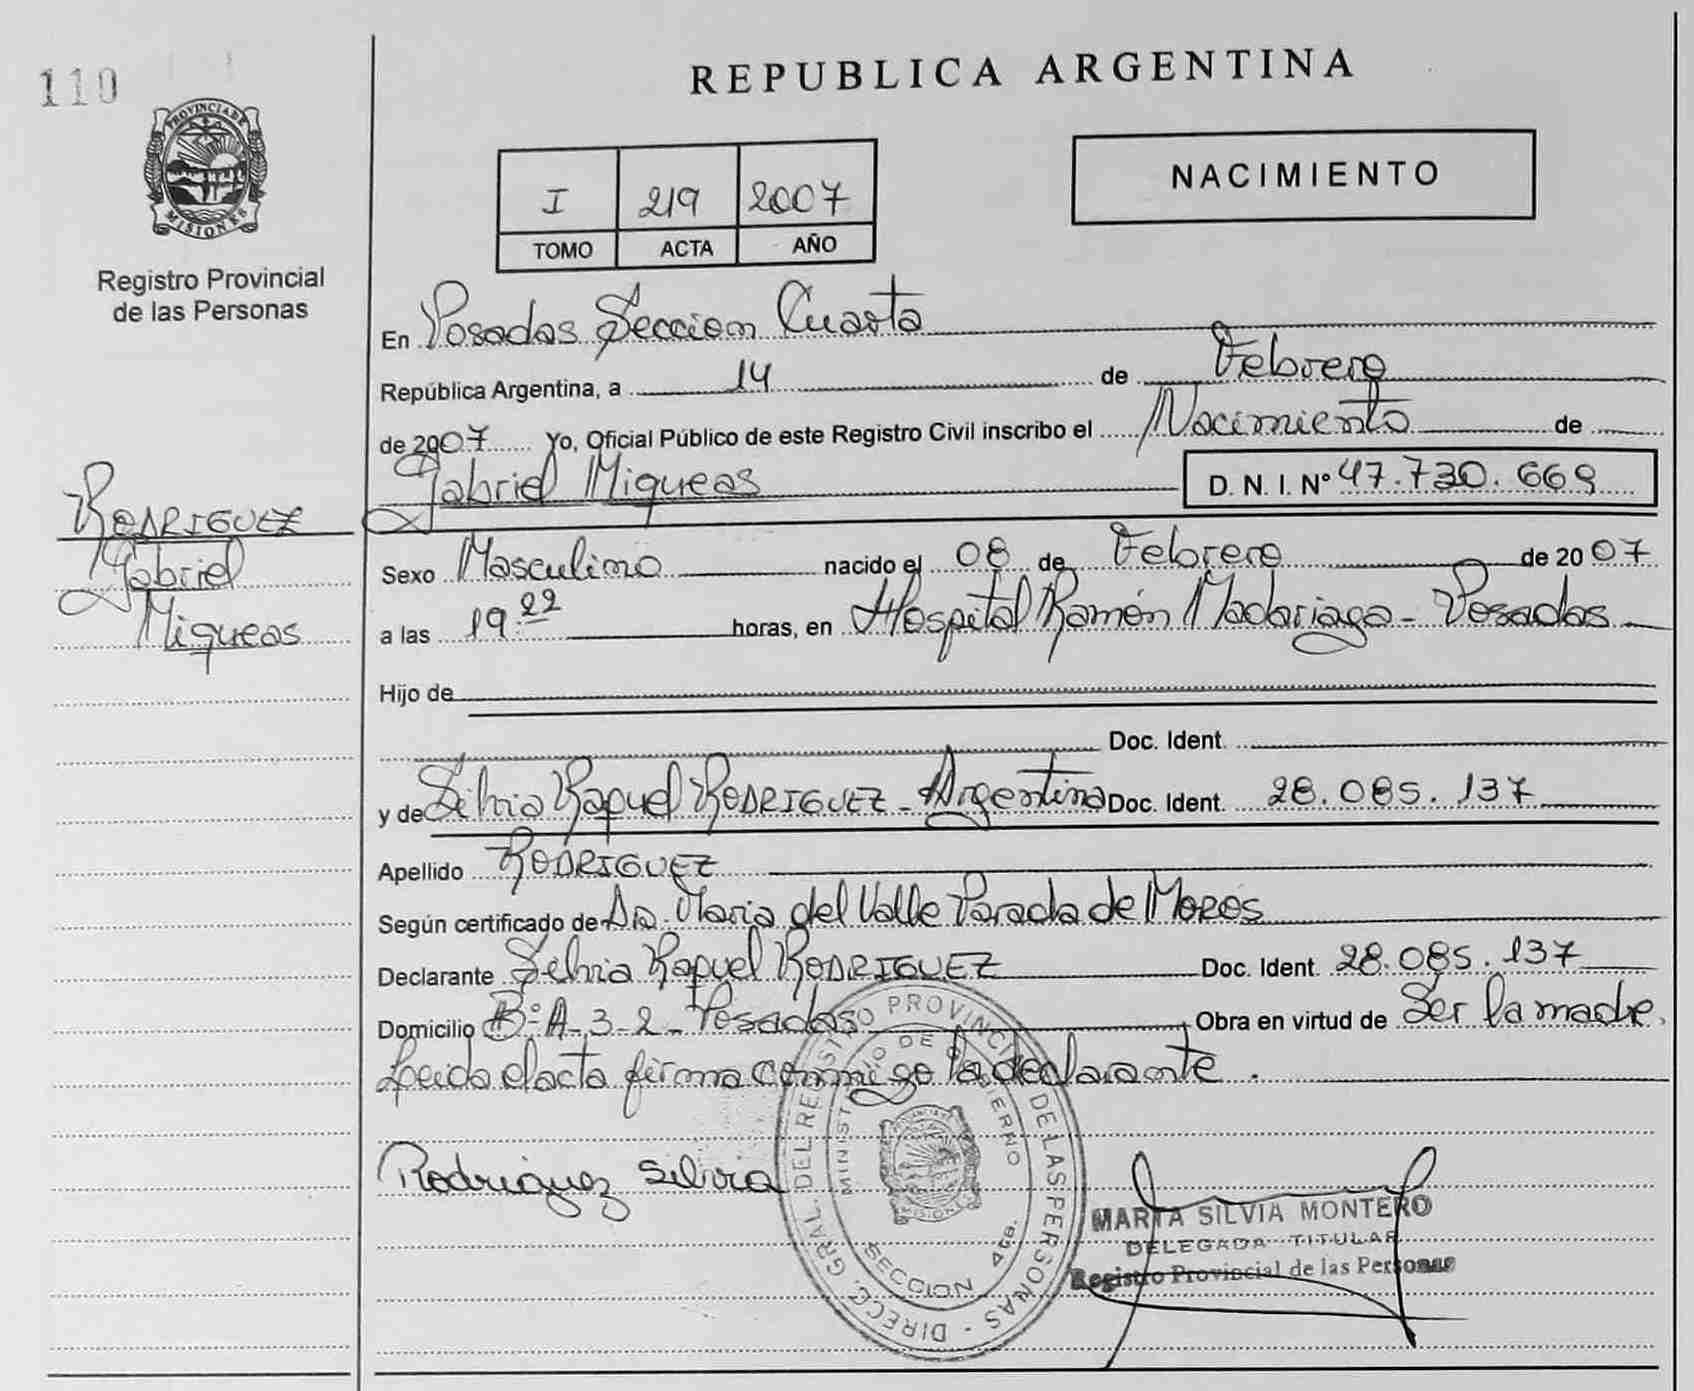 110
REPUBLICA ARGENTINA
PROVINCIA DE
MISIONES
Registro Provincial
de las Personas
I 219 2007
TOMO ACTA AÑO
NACIMIENTO
En Posadas Seccion Cuarta
República Argentina, a 14 de Febrero
de 2007 Yo, Oficial Público de este Registro Civil inscribo el Nacimiento de
Gabriel Miqueas D. N. I. Nº 47.730.669
RODRIGUEZ
Gabriel
Miqueas
Sexo Masculino nacido el 08 de Febrero de 2007
a las 19 22 horas, en Hospital Ramón Madariaga - Posadas
Hijo de
Doc. Ident.
y de Silvia Raquel RODRIGUEZ - Argentina Doc. Ident. 28.085.137
Apellido RODRIGUEZ
Según certificado de Dra. Maria del Valle Parada de Moros
Declarante Silvia Raquel RODRIGUEZ Doc. Ident. 28.085.137
Domicilio Bº A-3-2- Posadas Obra en virtud de Ser la madre.
Leida el acta firma conmigo la declarante.
Rodriguez Silvia
DIRECC. GRAL. DEL REGISTRO PROVINCIAL DE LAS PERSONAS -
MINISTERIO DE GOBIERNO
SECCION 4ta.
MISIONES
MARTA SILVIA MONTERO
DELEGADA TITULAR
Registro Provincial de las Personas